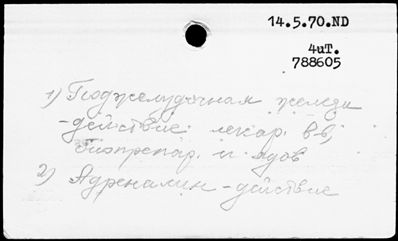 14.5.70.ND
4иТ.
788605
1) Поджелудочная железа
-действие лекар. в-в,
биопрепар. и ядов
2) Адреналин - действие